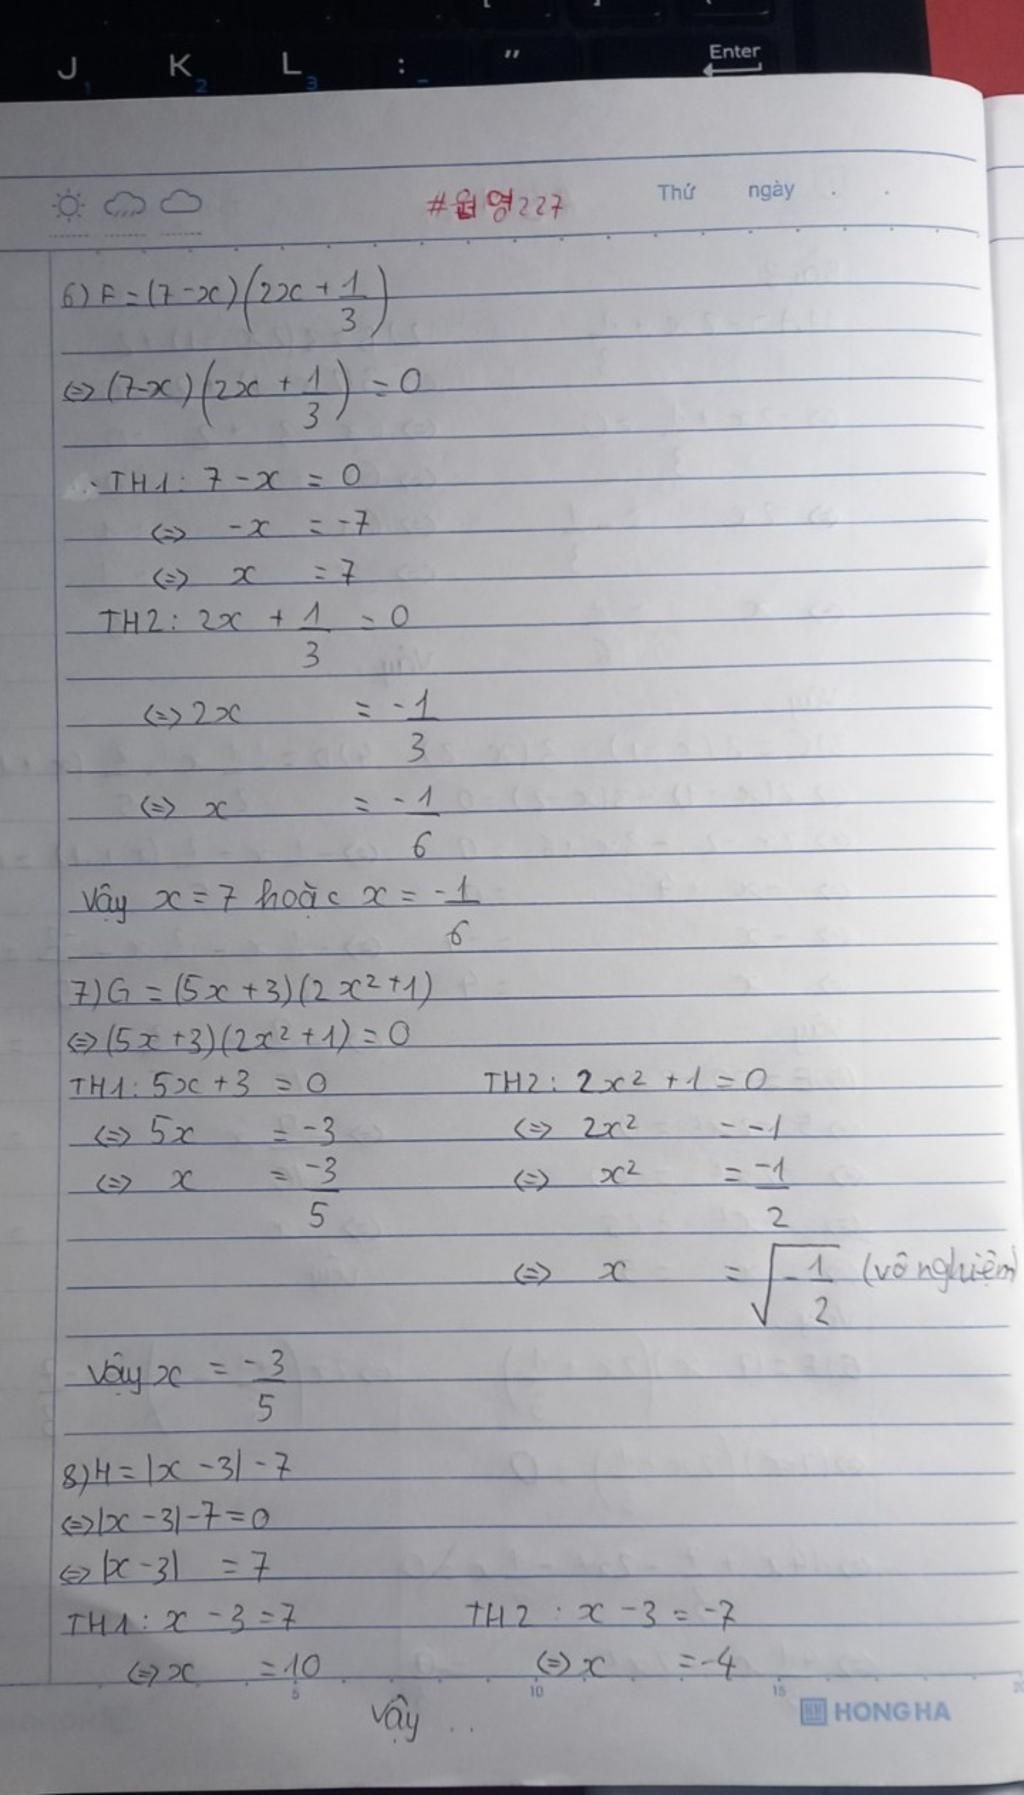 J1 K2 L3 :_ " Enter
#월영227 Thứ ngày . .
6) F = (7-x)(2x + 1/3)
<=> (7-x)(2x + 1/3) = 0
TH1: 7 - x = 0
<=> -x = -7
<=> x = 7
TH2: 2x + 1/3 = 0
<=> 2x = -1/3
<=> x = -1/6
Vậy x = 7 hoặc x = -1/6
7) G = (5x+3)(2x²+1)
<=> (5x+3)(2x²+1) = 0
TH1: 5x+3 = 0 TH2: 2x²+1 = 0
<=> 5x = -3 <=> 2x² = -1
<=> x = -3/5 <=> x² = -1/2
<=> x = √(-1/2) (vô nghiệm)
Vậy x = -3/5
8) H = |x-3| - 7
<=> |x-3| - 7 = 0
<=> |x-3| = 7
TH1: x - 3 = 7 TH2: x - 3 = -7
<=> x = 10 <=> x = -4
5 10 15 20
Vậy ..
HH HONG HA